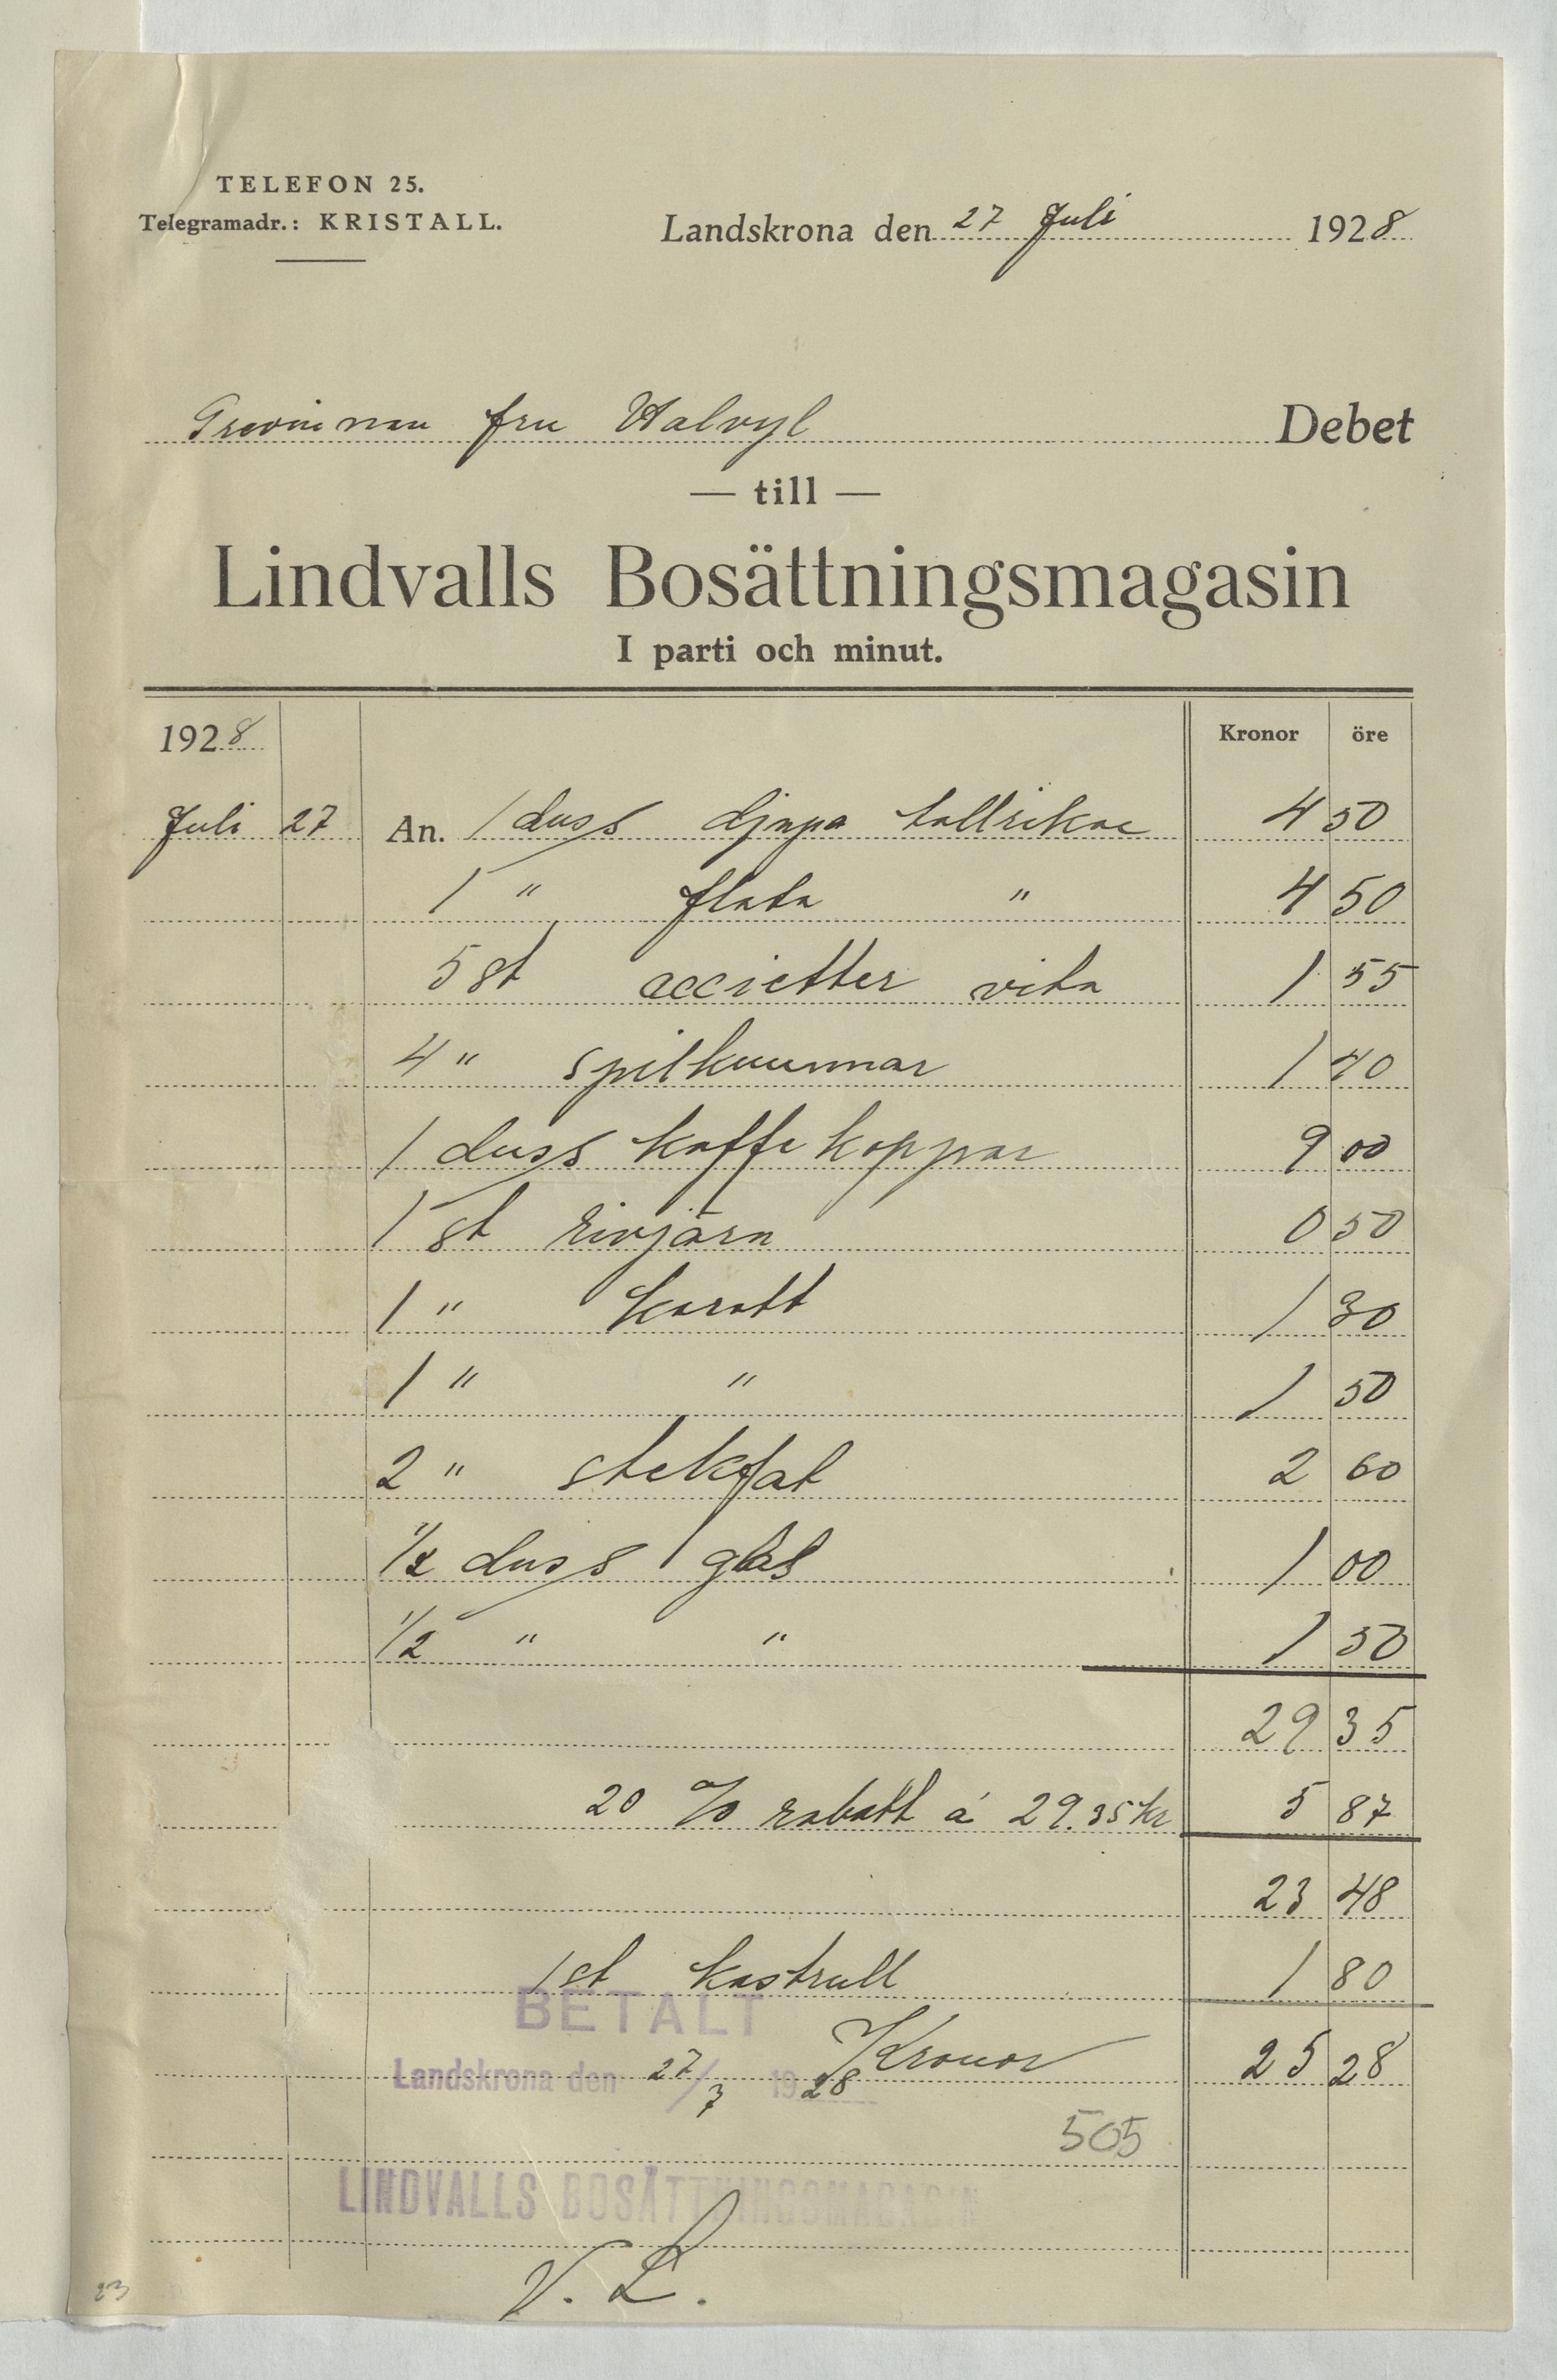 TELEFON 25.
Telegramadr.: KRISTALL.
Landskrona den 27 Juli 1928
Grevinnan fru Halvyl Debet
— till —
Lindvalls Bosättningsmagasin
I parti och minut.
1928 Kronor öre
Juli 27 An. 1 duss djupa tallrikar 4 50
1 " flata " 4 50
5 st accietter vita 1 55
4 " spilkummar 1 40
1 duss kaffekoppar 9 00
1 st rivjärn 0 50
1 " karott 1 30
1 " " 1 50
2 " stekfat 2 60
1/2 duss glas 1 00
1/2 " " 1 50
29 35
20 % rabatt á 29.35 kr 5 87
23 48
1 st kastrull 1 80
BETALT
Kronor 25 28
Landskrona den 27/7 1928
505
LINDVALLS BOSÄTTNINGSMAGASIN
V. L.
23